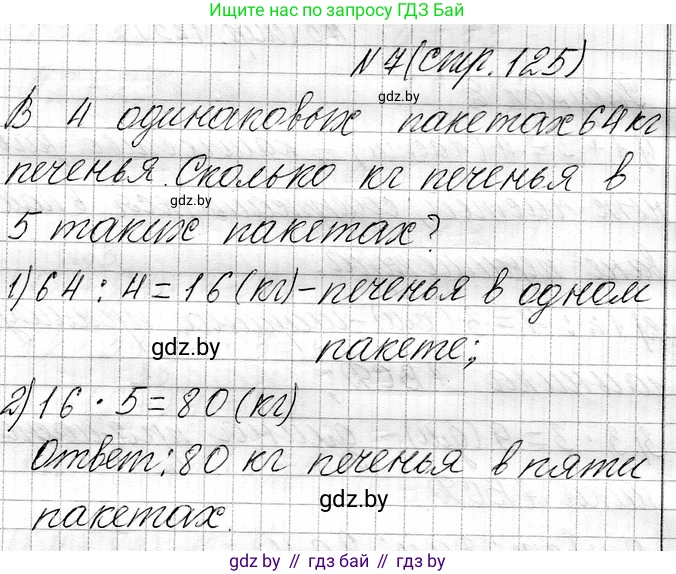 Ищите нас по запросу ГДЗ Бай
N 7 (стр. 125)
gdz.by
В 4 одинаковых пакетах 64 кг
печенья. Сколько кг печенья в
gdz.by
5 таких пакетах?
1) 64 : 4 = 16 (кг) – печенья в одном
gdz.by
пакете;
2) 16 · 5 = 80 (кг)
Ответ: 80 кг печенья в пяти
gdz.by
пакетах.
gdz.by // гдз бай // гдз by